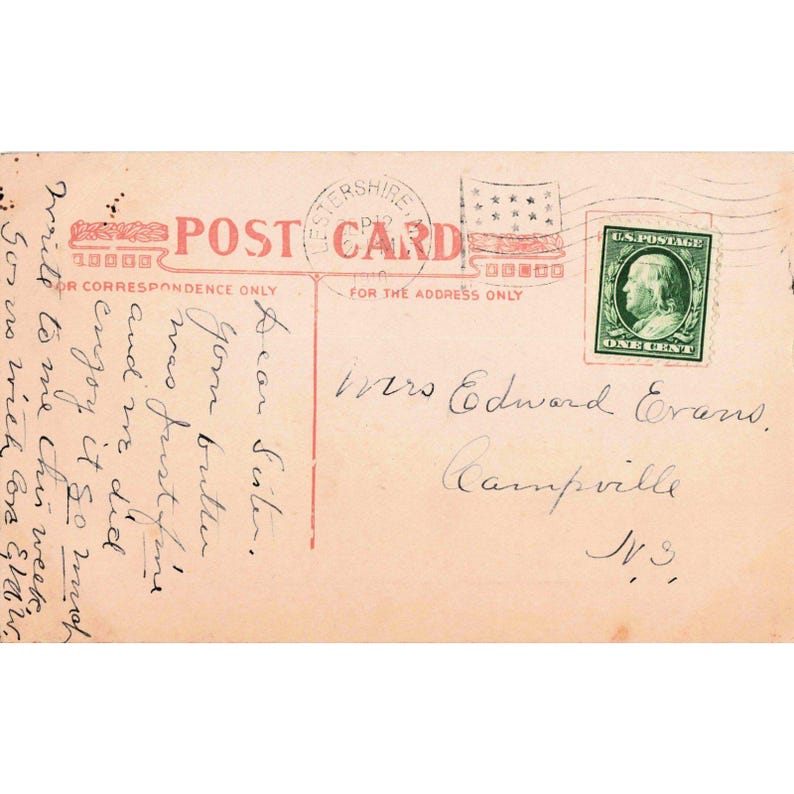 POST CARD
LESTERSHIRE, N.Y.
1910
U.S. POSTAGE
ONE CENT
FOR CORRESPONDENCE ONLY
FOR THE ADDRESS ONLY
Dear Sister.
Your butter
was just fine
and we did
enjoy it so much
Write to me this week.
with
Mrs Edward Evans.
Campville
N.Y.